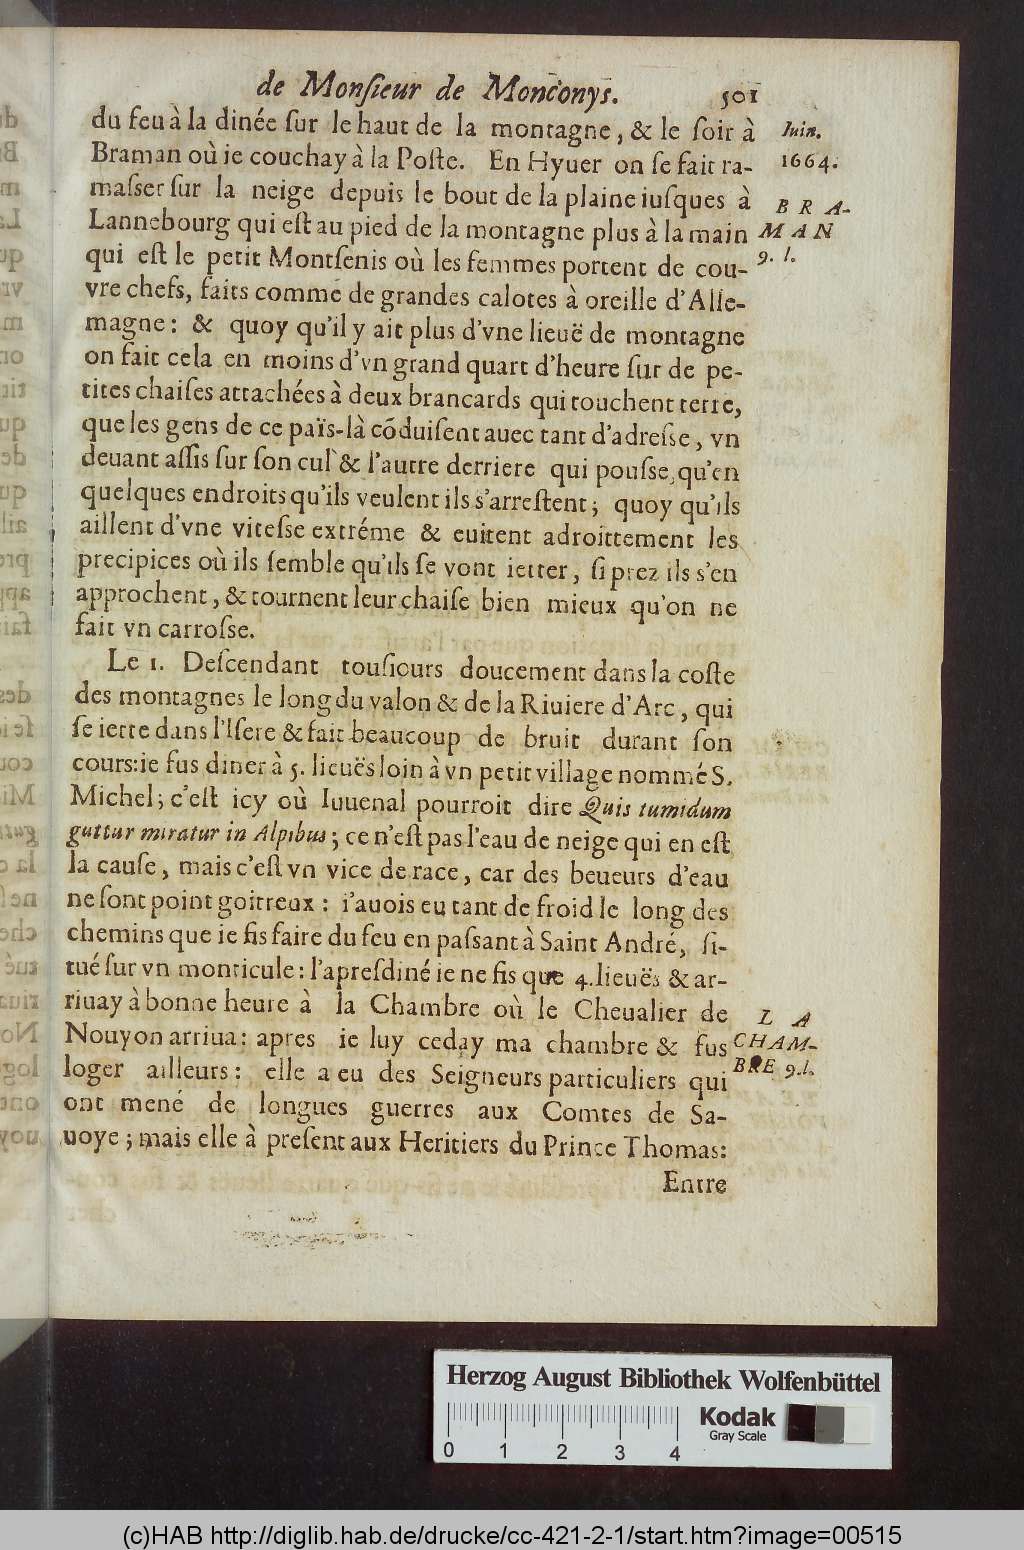 de Monſieur de Monconys. 501
du feu à la dinée ſur le haut de la montagne, & le ſoir à
Iuin.
Braman où ie couchay à la Poſte. En Hyuer on ſe fait ra-
1664.
maſser ſur la neige depuis le bout de la plaine iuſques à
B R A-
Lannebourg qui eſt au pied de la montagne plus à la main
M A N
qui eſt le petit Montſenis où les femmes portent de cou-
9. l.
vre chefs, faits comme de grandes calotes à oreille d'Alle-
magne: & quoy qu'il y ait plus d'vne lieuë de montagne
on fait cela en moins d'vn grand quart d'heure ſur de pe-
tites chaiſes attachées à deux brancards qui touchent terre,
que les gens de ce païs-là cõduiſent auec tant d'adreſse, vn
deuant aſſis ſur ſon cul & l'autre derriere qui pouſse, qu'en
quelques endroits qu'ils veulent ils s'arreſtent; quoy qu'ils
aillent d'vne viteſse extréme & euitent adroittement les
precipices où ils ſemble qu'ils ſe vont ietter, ſi prez ils s'en
approchent, & tournent leur chaiſe bien mieux qu'on ne
fait vn carroſse.
Le 1. Deſcendant touſicurs doucement dans la coſte
des montagnes le long du valon & de la Riuiere d'Arc, qui
ſe iette dans l'Iſere & fait beaucoup de bruit durant ſon
cours: ie fus diner à 5. lieuës loin à vn petit village nommé S.
Michel; c'eſt icy où Iuuenal pourroit dire Quis tumidum
guttur miratur in Alpibus; ce n'eſt pas l'eau de neige qui en eſt
la cauſe, mais c'eſt vn vice de race, car des beueurs d'eau
ne ſont point goitreux: i'auois eu tant de froid le long des
chemins que ie fis faire du feu en paſsant à Saint André, ſi-
tué ſur vn monticule: l'apreſdiné ie ne fis que 4. lieuës & ar-
riuay à bonne heure à la Chambre où le Cheualier de
L A
Nouyon arriua: apres ie luy ceday ma chambre & fus
CHAM-
loger ailleurs: elle a eu des Seigneurs particuliers qui
BRE 9. l.
ont mené de longues guerres aux Comtes de Sa-
uoye; mais elle à preſent aux Heritiers du Prince Thomas:
Entre
Herzog August Bibliothek Wolfenbüttel
Kodak
Gray Scale
0 1 2 3 4
(c)HAB http://diglib.hab.de/drucke/cc-421-2-1/start.htm?image=00515